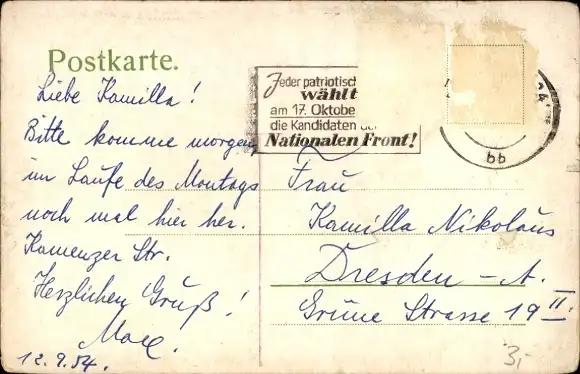 Postkarte.
Liebe Kamilla!
Bitte komme morgen
im Laufe des Montags
noch mal hier her.
Kamenzer Str.
Herzlichen Gruß!
12.9.54.
Jeder patriotisch
wählt
am 17. Oktobe
die Kandidaten de
Nationalen Front!
bb
Frau
Kamilla Nikolaus
Dresden - A.
Grüne Strasse 19 II.
3,-